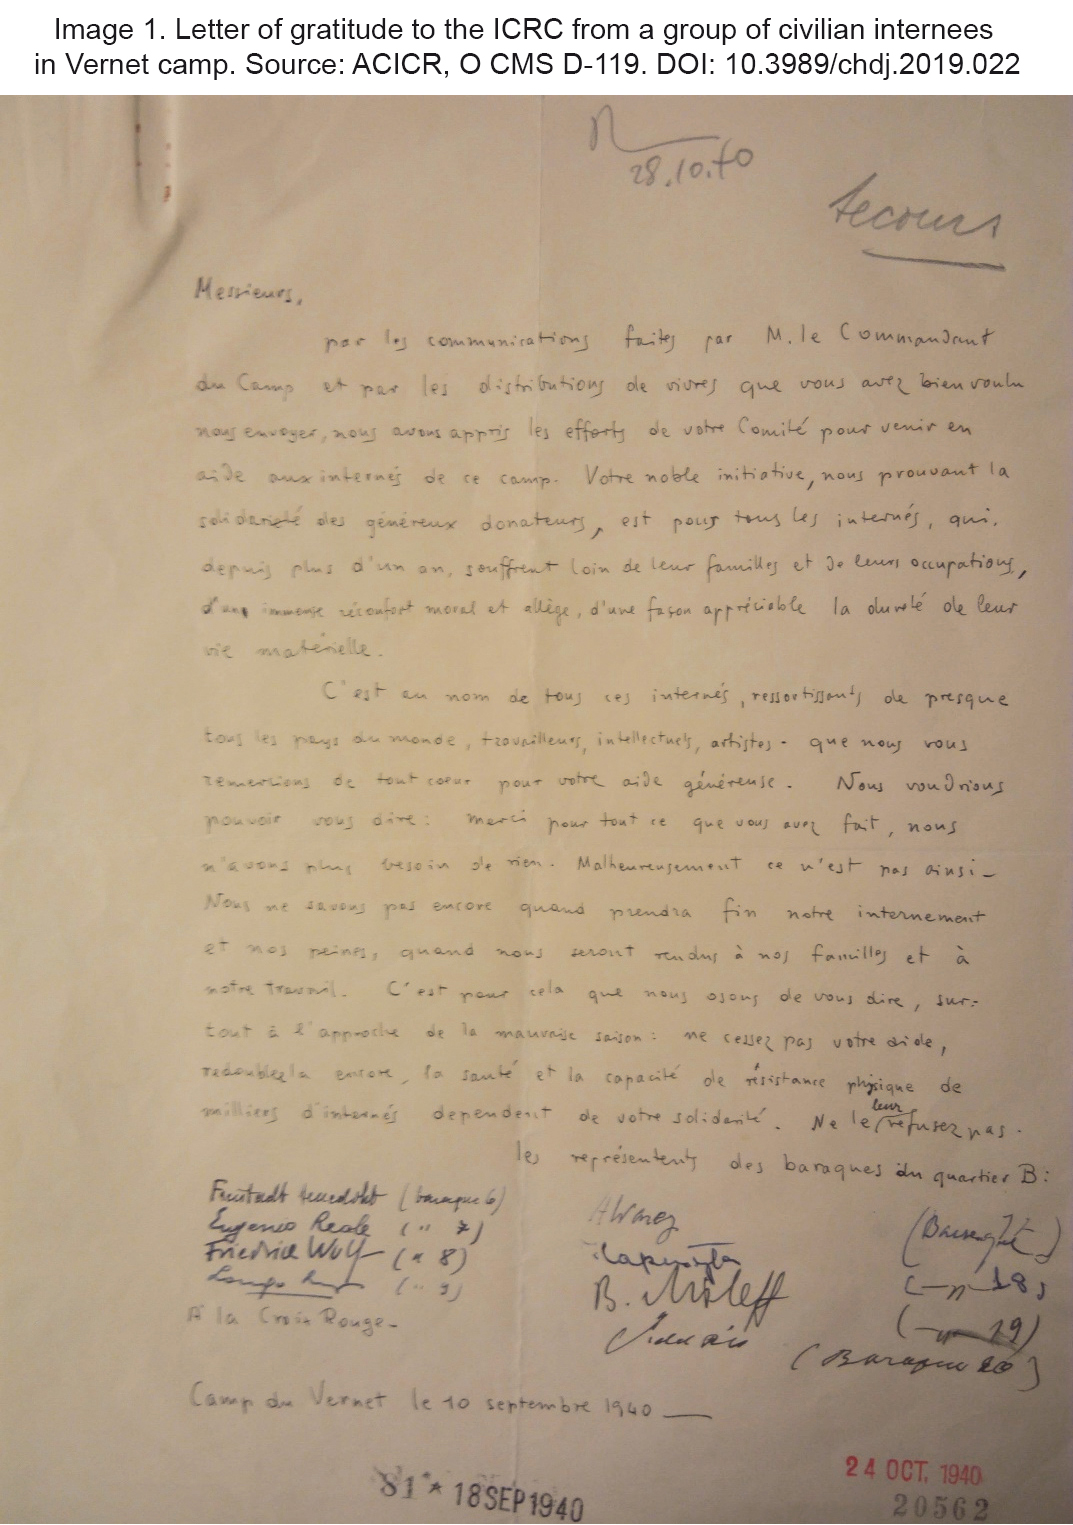 Image 1. Letter of gratitude to the ICRC from a group of civilian internees
in Vernet camp. Source: ACICR, O CMS D-119. DOI: 10.3989/chdj.2019.022
28.10.40
Secours
Messieurs,
par les communications faites par M. le Commandant
du Camp et par les distributions de vivres que vous avez bien voulu
nous envoyer, nous avons appris les efforts de votre Comité pour venir en
aide aux internés de ce camp. Votre noble initiative, nous prouvant la
solidarieté des généreux donateurs, est pour tous les internés, qui,
depuis plus d'un an, souffrent loin de leur familles et de leurs occupations,
d'un immense réconfort moral et allège, d'une façon appréciable la dureté de leur
vie matérielle.
C'est au nom de tous ces internés, ressortissants de presque
tous les pays du monde, travailleurs, intellectuels, artistes - que nous vous
remercions de tout coeur pour votre aide généreuse. Nous voudrions
pouvoir vous dire: merci pour tout ce que vous avez fait, nous
n'avons plus besoin de rien. Malheureusement ce n'est pas ainsi-
Nous ne savons pas encore quand prendra fin notre internement
et nos peines, quand nous seront rendus à nos familles et à
notre travail. C'est pour cela que nous osons de vous dire, sur=
tout à l'approche de la mauvaise saison: ne cessez pas votre aide,
redoublezla encore, la santé et la capacité de résistance physique de
milliers d'internés dependent de votre solidarité. Ne le leur refusez pas.
les représentents des baraques du quartier B:
(baraque 6)
Eugenio Reale ( " 7)
Friedrich Wolf ( " 8)
( " 9)
Alvarez
B.
( -"- 18)
( -"- 19)
(Baraque 20)
A la Croix Rouge-
Camp du Vernet le 10 septembre 1940
81 * 18SEP1940
24 OCT. 1940
20562